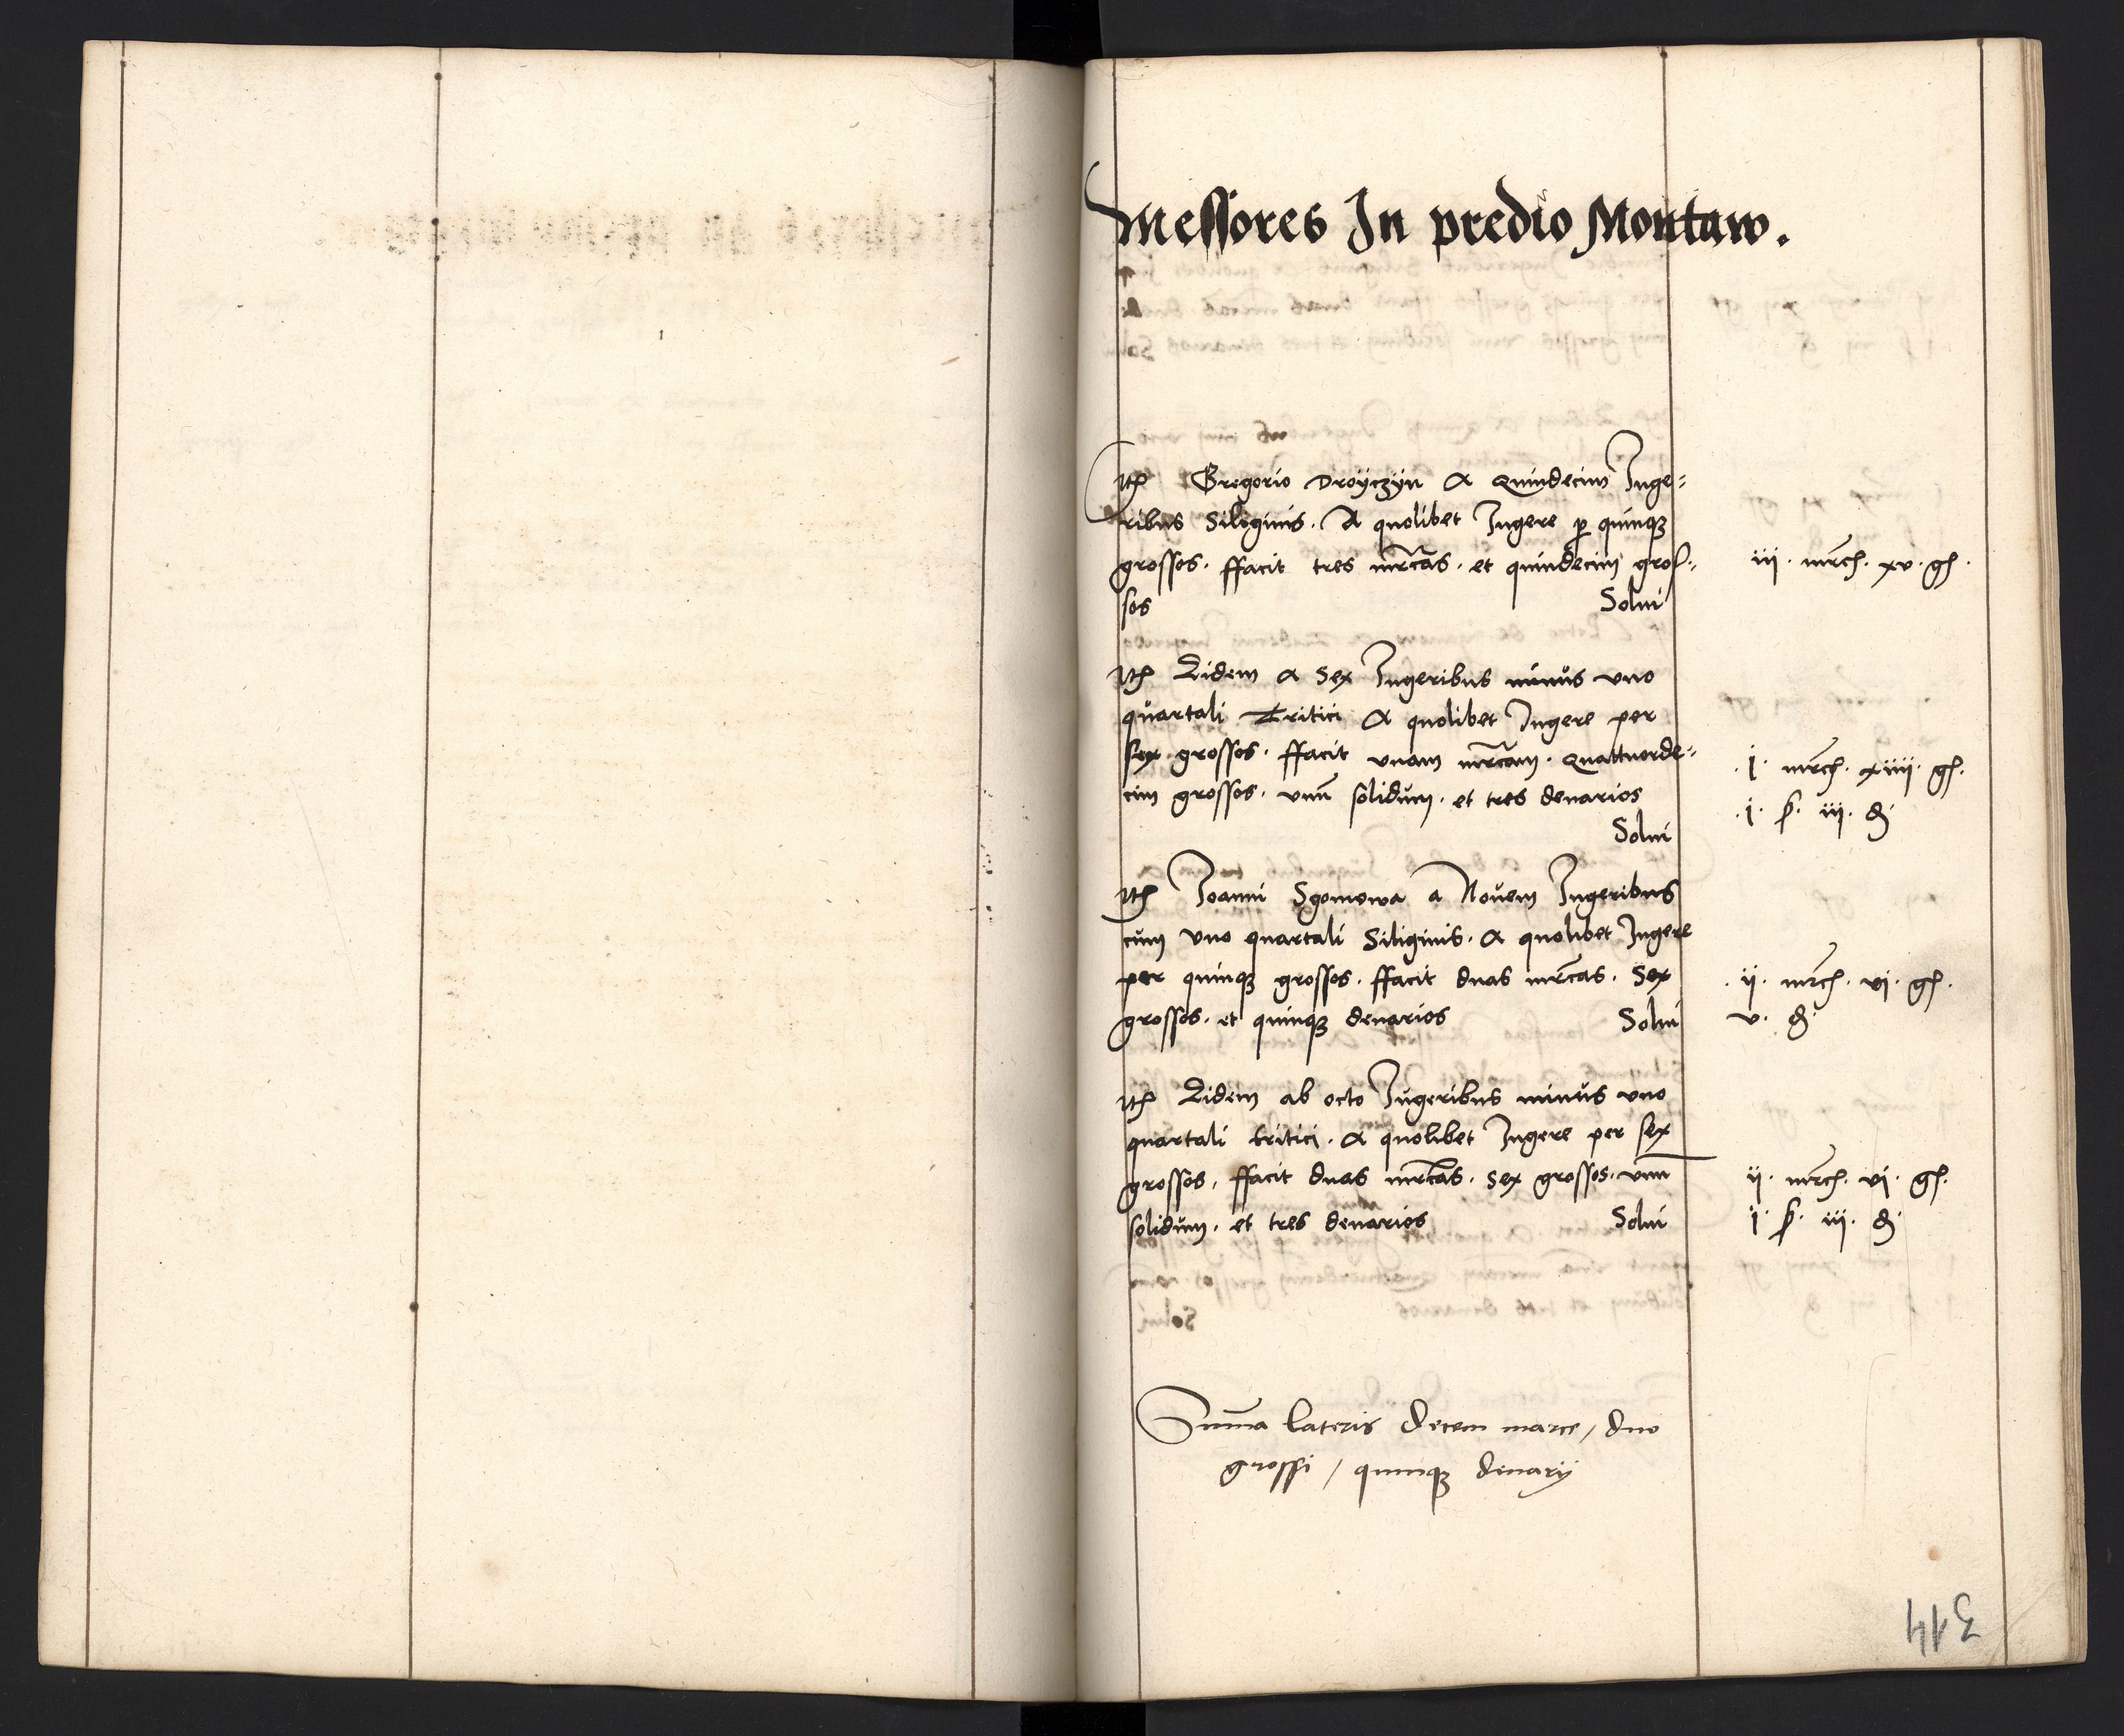 Messores In predio Montaw.
Itm Gregorio Droÿczÿn A Quindecim Juge=
ribus Siliginis. A quolibet Jugere p quinqz
grossos. ffacit tres mrcas. et quindecim gros=
sos Solui
iii. mrch. xv. gh.
Itm Eidem A Sex Jugeribus minus vno
quartali Tritici A quolibet Jugere per
sex grossos. ffacit vnam mrcam. Quattuorde=
cim grossos. vnu solidum. et tres denarios
Solui
.j. mrch. xiiii. gh.
.j. ß. iii. d.
Itm Joanni Sgomowa a Nouem Jugeribus
cum Vno quartali Siliginis. A quolibet Jugere
per quinqz grossos. ffacit duas mrcas. Sex
grossos. et quinqz denarios Solui
.ij. mrch. vi. gh.
v. d.
Itm Eidem ab octo Jugeribus minus vno
quartali tritici. A quolibet Jugere per sex
grossos. ffacit duas mrcas. Sex grossos. vnu
solidum. et tres denarios Solui
ij. mrch. vi. gh.
j. ß. iii. d.
Suma lateris Decem marce / duo
grossi / quinqz denarij
314